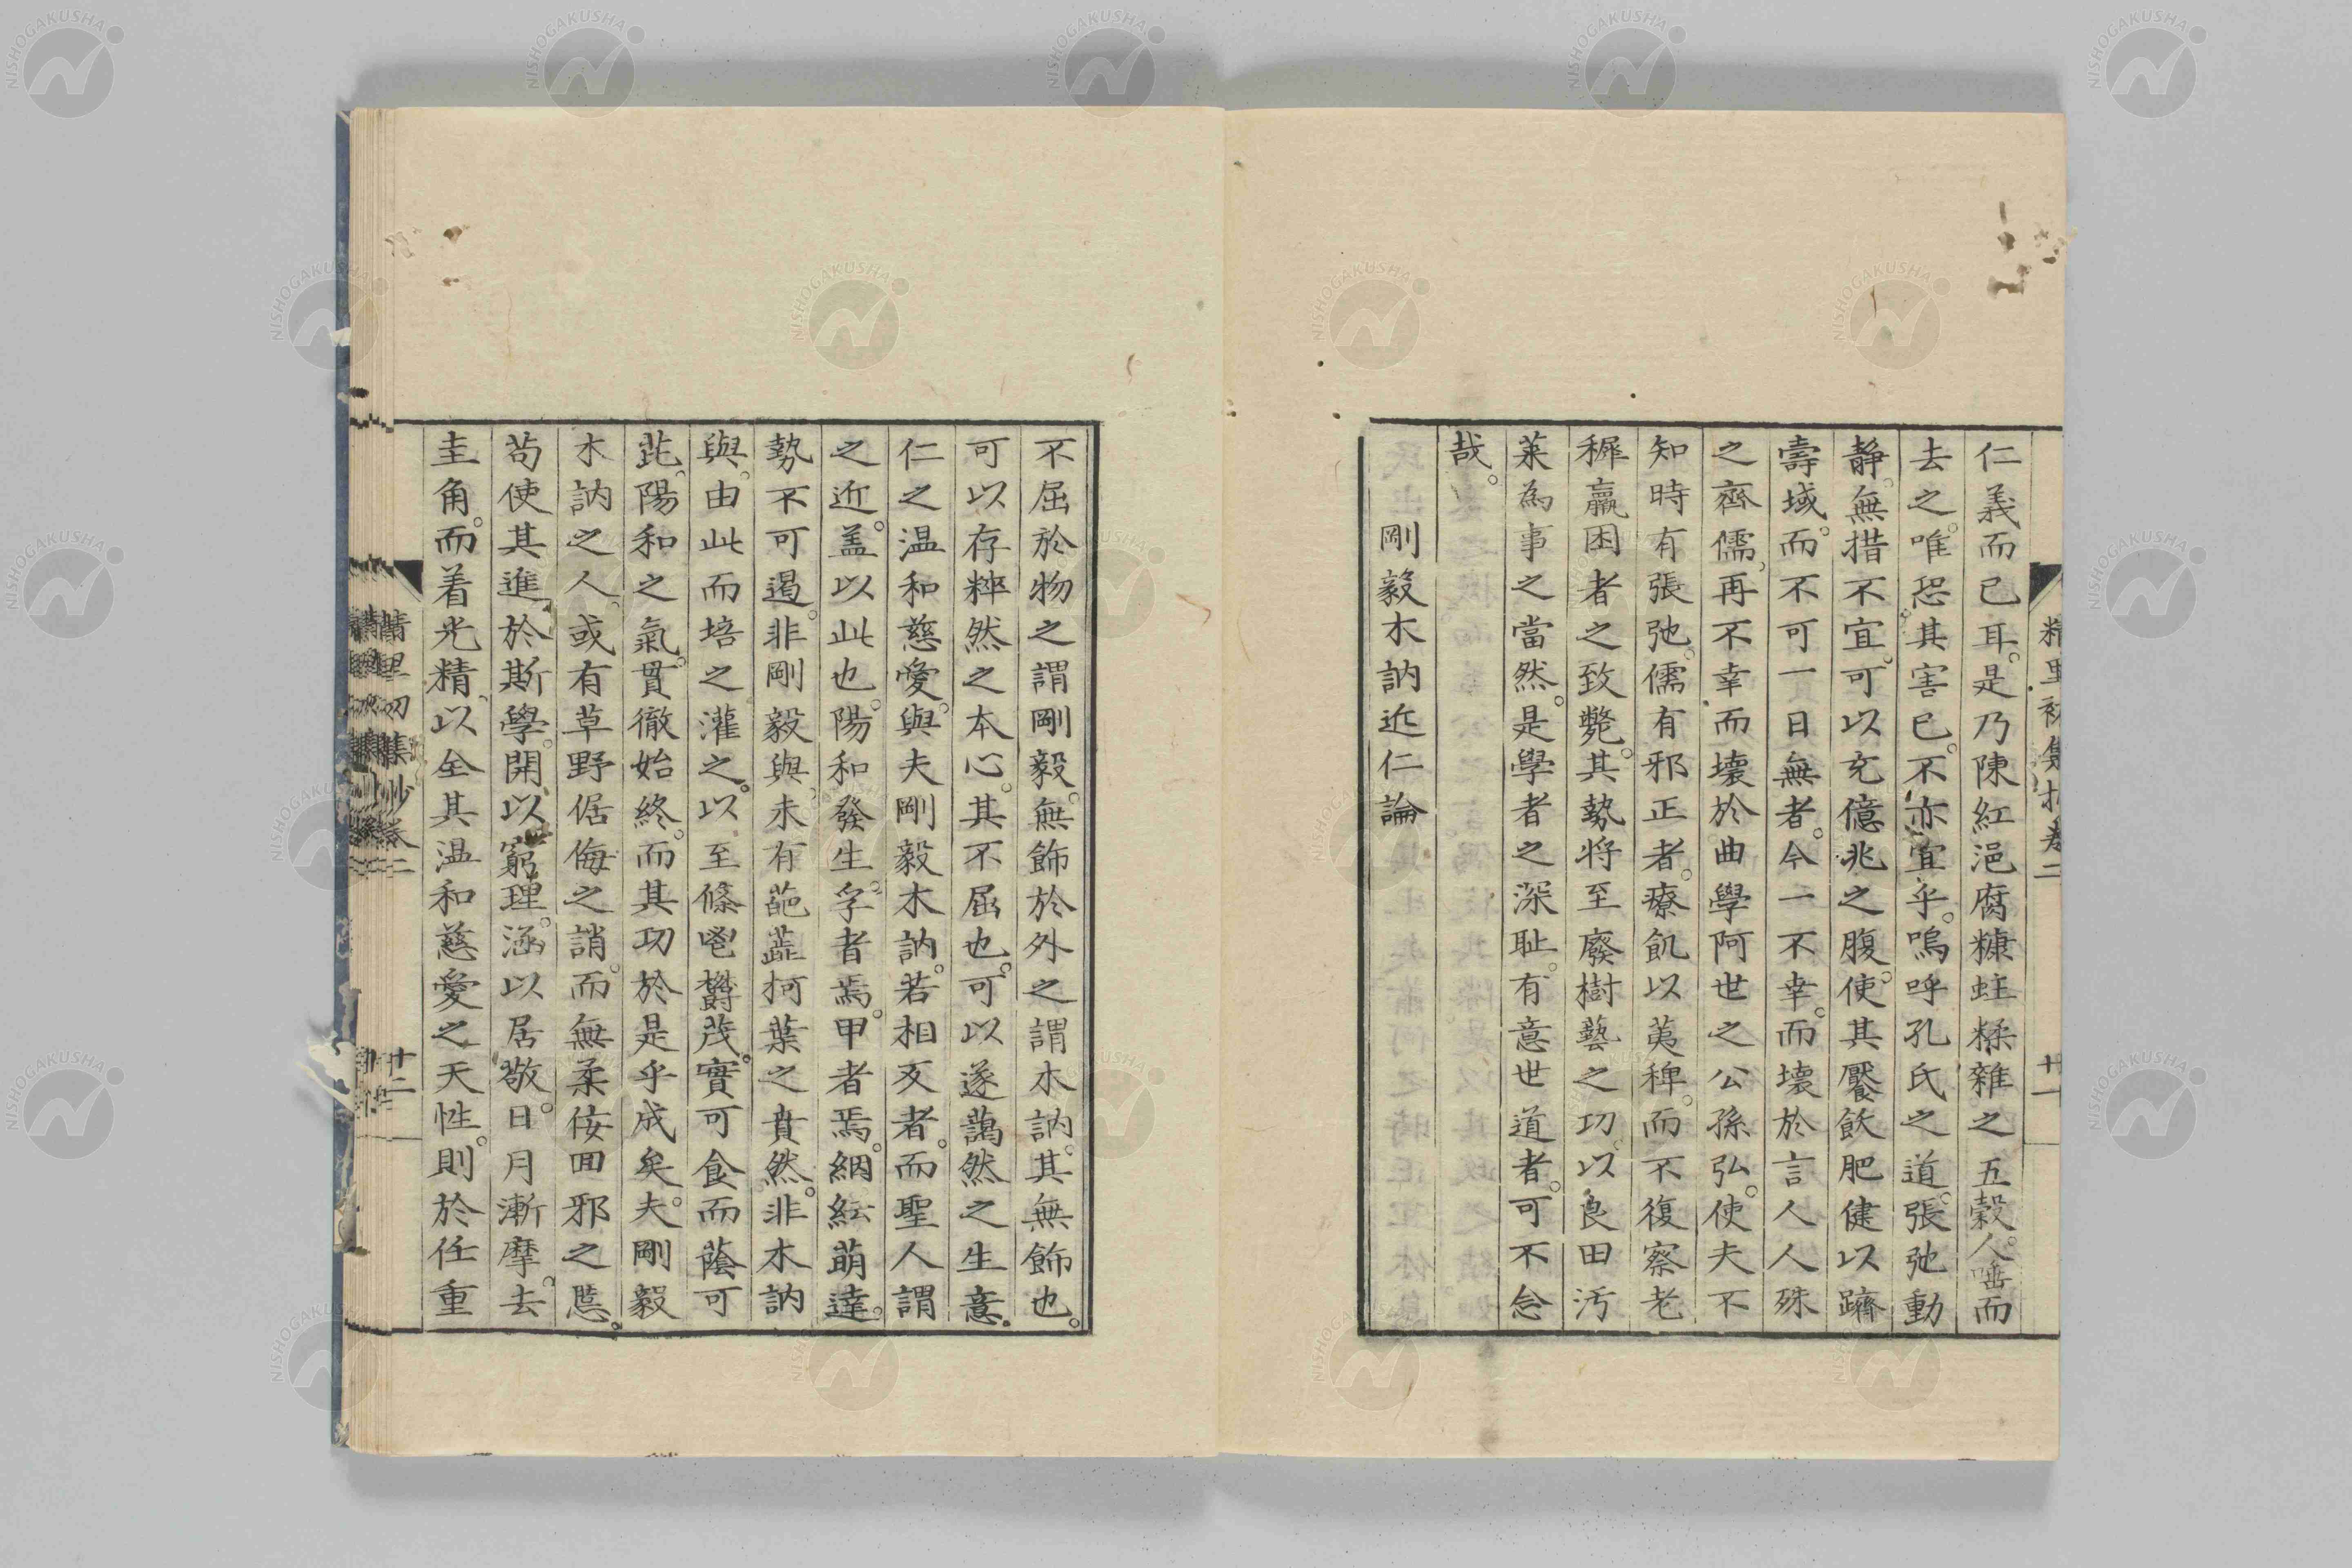 仁義而已耳。是乃陳紅浥腐糠蛀糅雜之五穀。人唾而
去之。唯恐其害已。不亦宜乎。嗚呼孔氏之道。張弛動
靜。無措不宜。可以充億兆之腹。使其饜飫肥健以躋
壽域。而不可一日無者。今一不幸。而壞於言人人殊
之齊儒。再不幸而壞於曲學阿世之公孫弘。使夫不
知時有張弛。儒有邪正者。療飢以荑稗。而不復察老
穉羸困者之致斃。其勢將至廢樹藝之功。以良田汚
萊為事之當然。是學者之深耻。有意世道者。可不念
哉。
剛毅木訥近仁論
精里初集抄卷二
十一
不屈於物之謂剛毅。無飾於外之謂木訥。其無飾也。
可以存粹然之本心。其不屈也。可以遂藹然之生意。
仁之温和慈愛。與夫剛毅木訥。若相反者。而聖人謂
之近。盖以此也。陽和發生。孚者焉。甲者焉。絪縕萌達。
勢不可遏。非剛毅與。未有葩蘂柯葉之賁然。非木訥
與。由此而培之灌之。以至條鬯欝茂。實可食而蔭可
芘。陽和之氣。貫徹始終。而其功於是乎成矣。夫剛毅
木訥之人。或有草野倨侮之誚。而無柔侫回邪之慝。
苟使其進於斯學。開以窮理。涵以居敬。日月漸摩。去
圭角。而着光精。以全其温和慈愛之天性。則於任重
精里初集抄卷二
十二